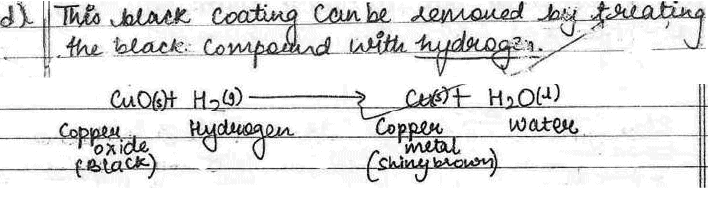 d) This black coating can be removed by treating
the black compound with hydrogen.
CuO(s)+ H₂(g) ⟶ Cu(s)+ H₂O(l)
Copper oxide (Black) Hydrogen Copper metal (Shiny brown) Water